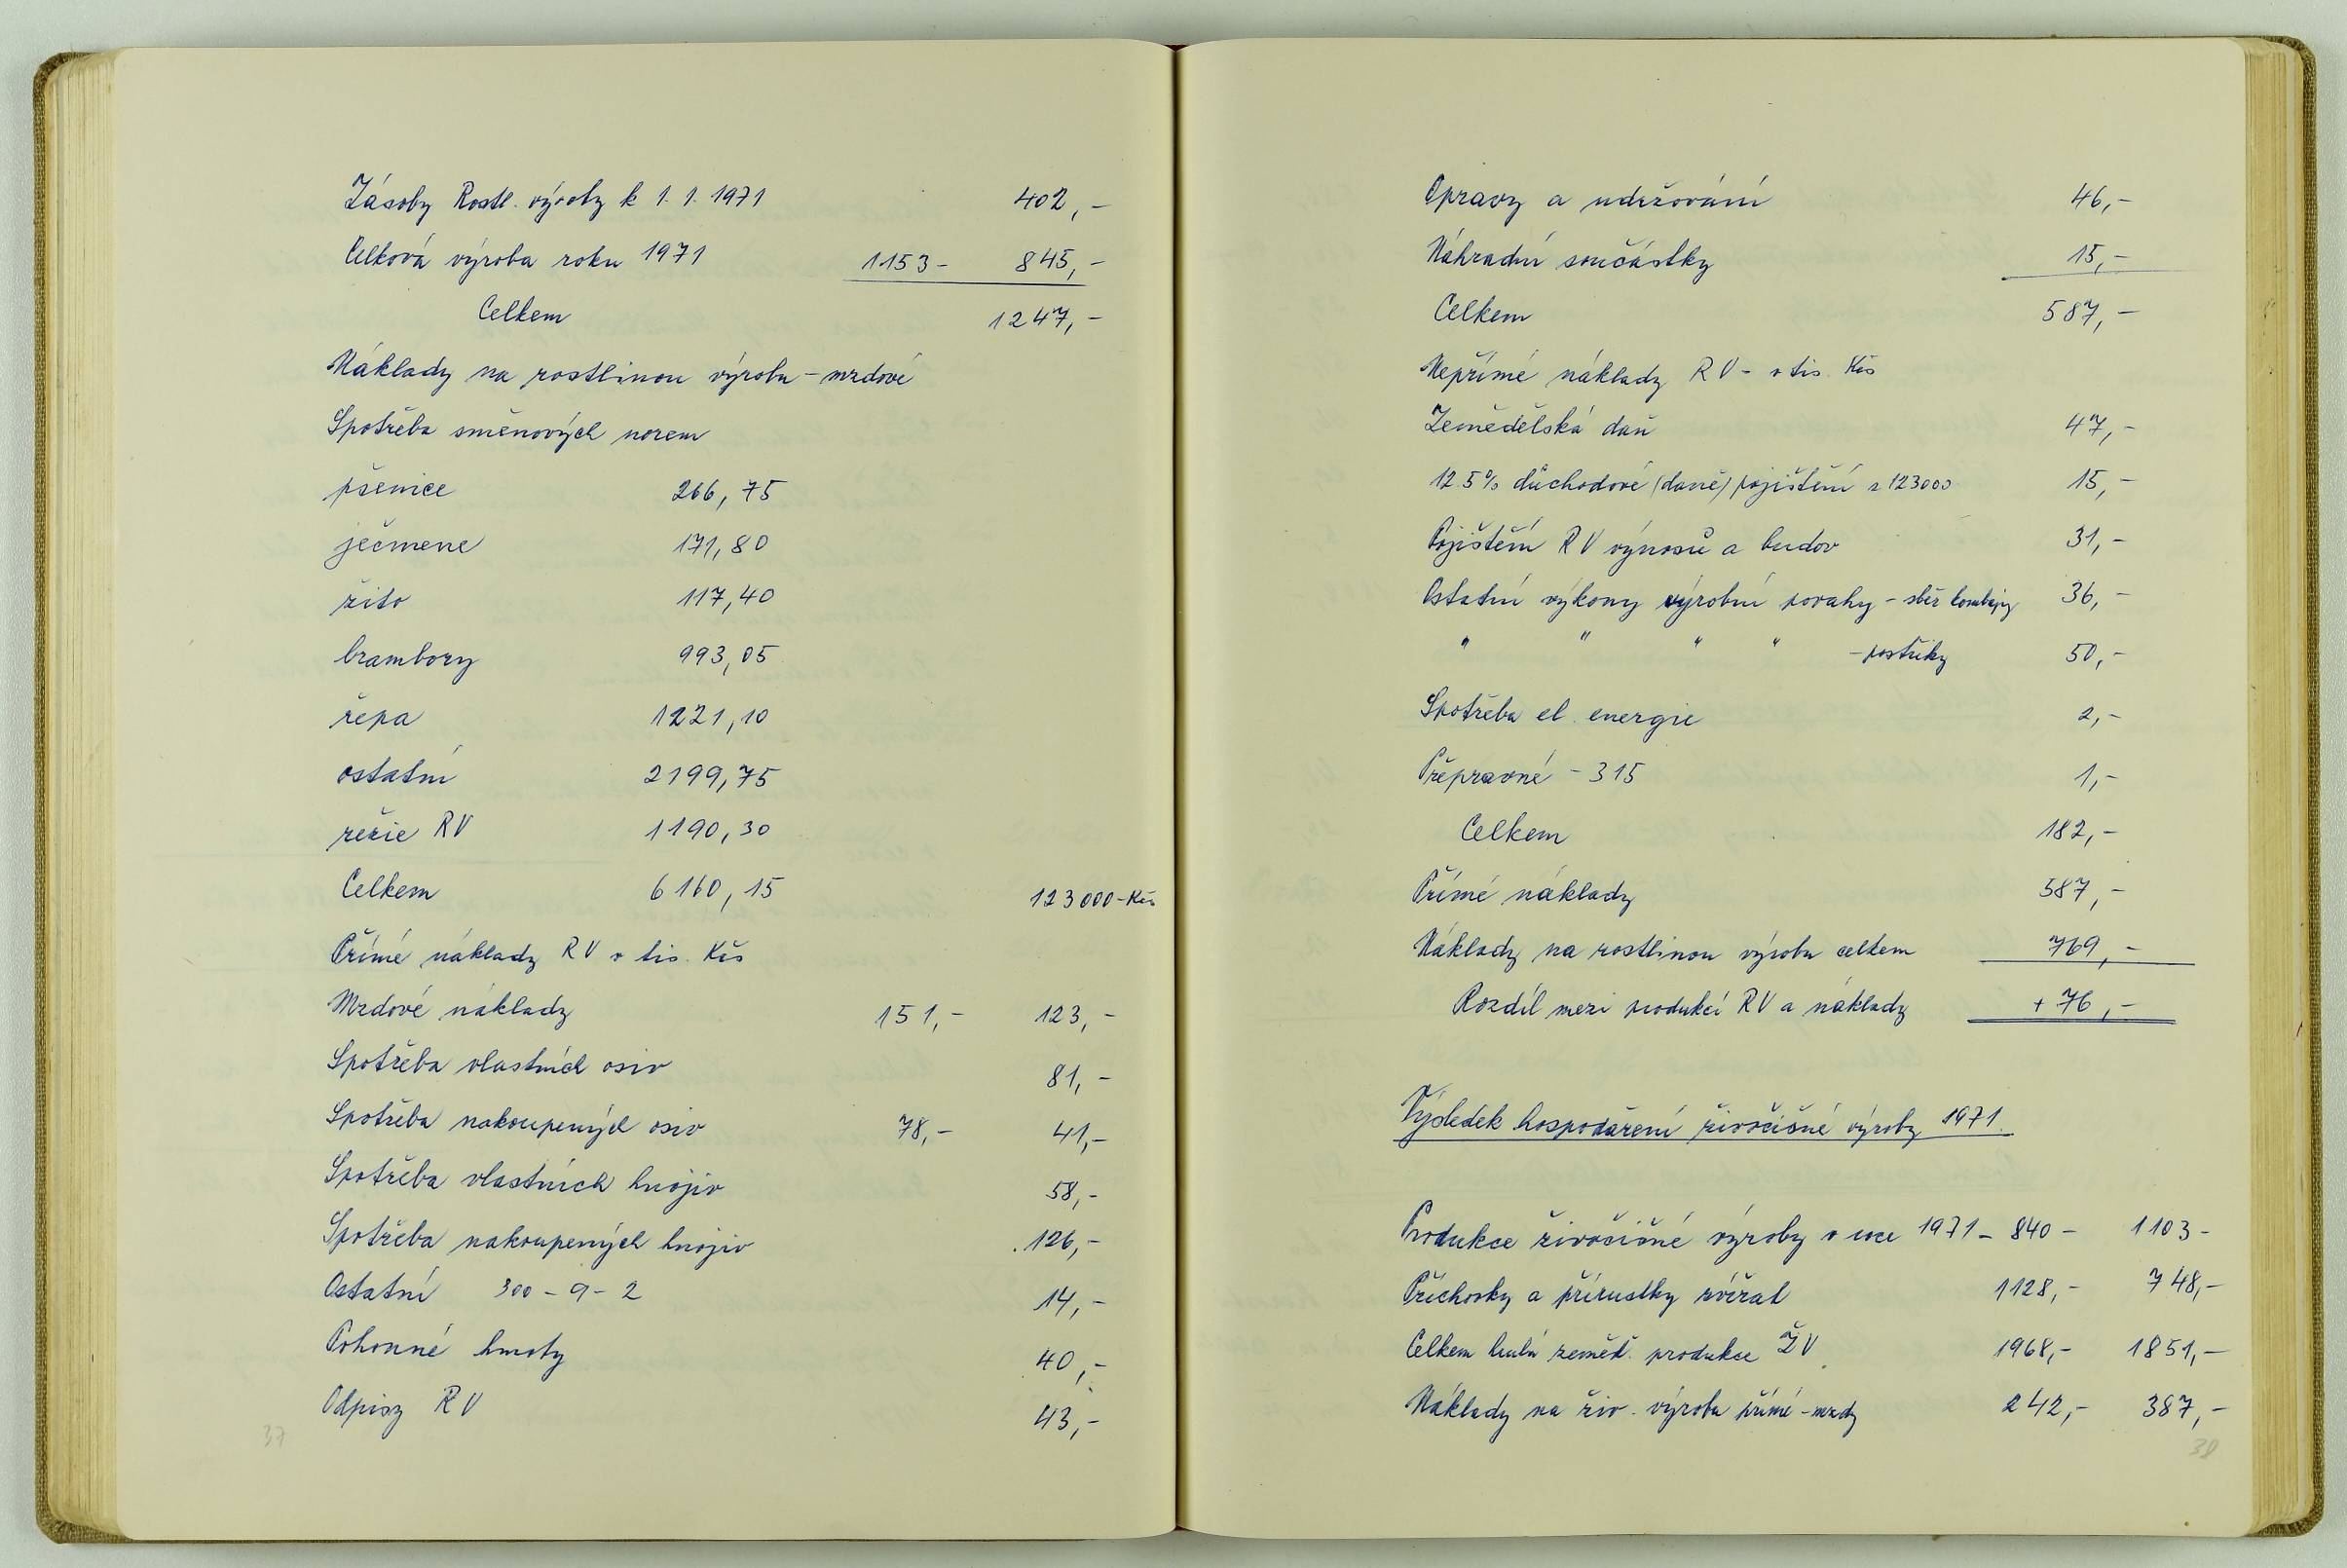 Zásoby Rostl. výroby k 1. 1. 1971 402,-
Celková výroba roku 1971 1153- 845,-
Celkem 1247,-
Náklady na rostlinou výrobu - mzdové
Spotřeba směnových norem
pšenice 266,75
ječmene 171,80
žito 117,40
brambory 993,05
řepa 1221,10
ostatní 2199,75
režie RV 1190,30
Celkem 6160,15 123000-Kčs
Přímé náklady RV v tis. Kčs
Mzdové náklady 151,- 123,-
Spotřeba vlastních osiv 81,-
Spotřeba nakoupených osiv 78,- 41,-
Spotřeba vlastních hnojiv 58,-
Spotřeba nakoupených hnojiv 126,-
Ostatní 300-9-2 14,-
Pohonné hmoty 40,-
Odpisy RV 43,-
37
Opravy a udržování 46,-
Náhradní součástky 15,-
Celkem 587,-
Nepřímé náklady RV - v tis. Kčs
Zemědělská daň 47,-
12.5% důchodové (daně) pojištění z 123000 15,-
Pojištění RV výnosů a budov 31,-
Ostatní výkony výrobní povahy - sběr kombajny 36,-
" " " " - postřiky 50,-
Spotřeba el. energie 2,-
Přepravné - 315 1,-
Celkem 182,-
Přímé náklady 587,-
Náklady na rostlinou výrobu celkem 769,-
Rozdíl mezi produkcí RV a náklady + 76,-
Výsledek hospodaření živočišné výroby 1971.
Produkce živočišné výroby v roce 1971 - 840 - 1103 -
Příchovky a přírustky zvířat 1128,- 748,-
Celkem hrubá zeměd. produkce ŽV 1968,- 1851,-
Náklady na živ. výrobu přímé - mzdy 242,- 387,-
38